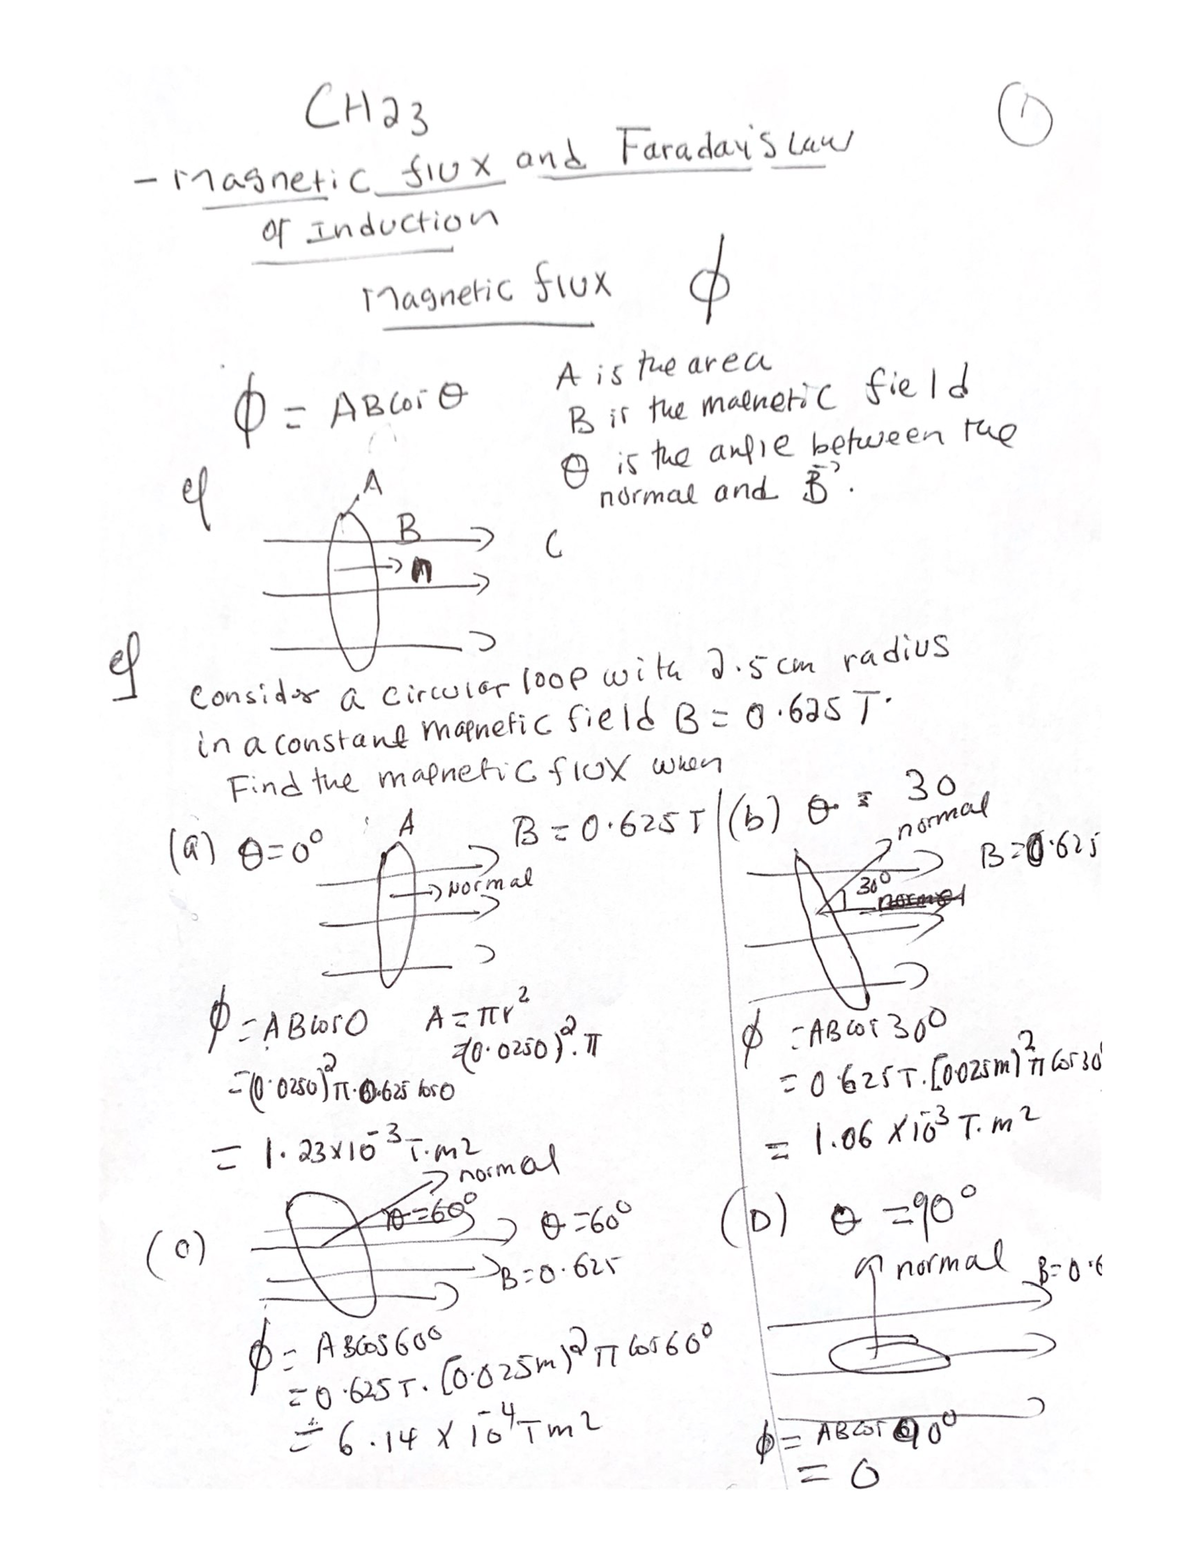 CH23
①
- Magnetic flux and Faraday's Law
of Induction
Magnetic flux ϕ
ϕ = ABcosθ
A is the area
B is the magnetic field
θ is the angle between the
normal and B⃗.
eg
A
B
n
C
eg
Consider a circular loop with 2.5 cm radius
in a constant magnetic field B = 0.625 T.
Find the magnetic flux when
(a) θ=0°
A
B = 0.625 T
Normal
ϕ = ABcos0
A = πr²
=(0.0250)².π
=(0.0250)²π.0.625 cos0
= 1.23×10⁻³ T.m²
(b) θ = 30
normal
B=0.625
30°
ϕ = ABcos30°
= 0.625T.[0.025m)²π cos30°
= 1.06 ×10⁻³ T.m²
(c)
normal
θ=60°
θ=60°
B=0.625
ϕ = ABcos60°
= 0.625T.(0.025m)²π cos60°
= 6.14 × 10⁻⁴ Tm²
(D) θ =90°
normal
B=0.6
ϕ = ABcos90°
= 0